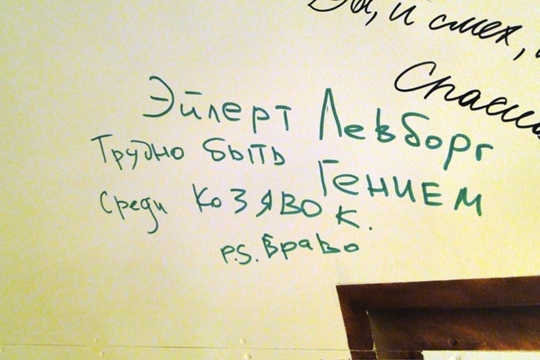 и смех,
Эйлерт Левборг
Трудно быть Гением
Среди Козявок.
P.S. Браво